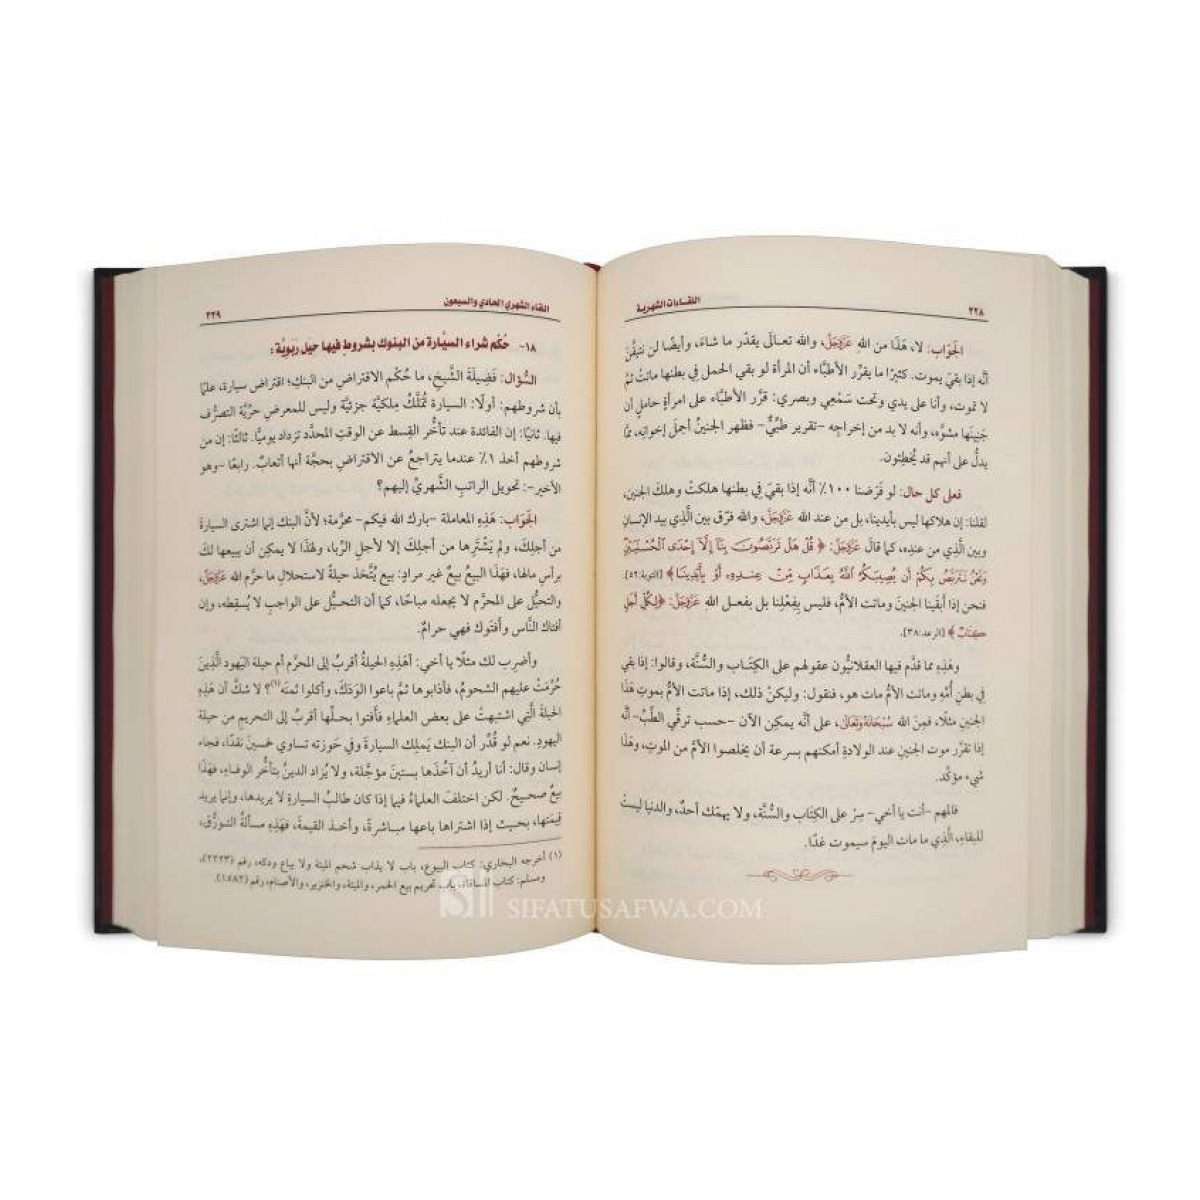 ٢٢٨
اللقاءات الشهرية
الجَوَاب: لا، هَذَا من اللهِ عَزَّوَجَلَّ، والله تعالَى يقدّر ما شاءَ، وأيضًا لن نتيقَّنَ
أنَّه إذا بقيَ يموت. كثيرًا ما يقرِّر الأطبَّاء أن المرأة لو بقي الحمل في بطنها ماتتْ ثمَّ
لا تموت، وأنا على يدي وتحت سَمْعِي وبصري: قرَّر الأطبَّاء على امرأةٍ حاملٍ أن
جَنِينَها مشوَّه، وأنه لا بد من إخراجِه -تقرير طبِّيٌّ- فظهر الجنينُ أجملَ إخوانِه، ممَّا
يدلُّ على أنهم قد يُخطِئون.
فعلى كل حال: لو فَرَضنا ١٠٠٪ أنَّه إذا بقيَ في بطنها هلكتْ وهلكَ الجنين،
لقلنا: إن هلاكها ليس بأيدينا، بل من عند الله عَزَّوَجَلَّ، والله فرّق بين الَّذي بيد الإنسانِ
وبين الَّذي من عندِه، كما قالَ عَزَّوَجَلَّ: ﴿ قُلْ هَلْ تَرَبَّصُونَ بِنَآ إِلَّآ إِحْدَى ٱلْحُسْنَيَيْنِ
وَنَحْنُ نَتَرَبَّصُ بِكُمْ أَن يُصِيبَكُمُ ٱللَّهُ بِعَذَابٍ مِّنْ عِندِهِۦٓ أَوْ بِأَيْدِينَا﴾ [التوبة:٥٢]،
فنحن إذا أبقينا الجنينَ وماتت الأمُّ، فليس بِفِعْلِنا بل بفعـل اللهِ عَزَّوَجَلَّ: ﴿لِكُلِّ أَجَلٍ
كِتَابٌ ﴾ [الرعد:٣٨].
وهَذِهِ مما قدَّم فيها العقلانيُّون عقولهم على الكِتَـاب والسُّنَّة، وقالوا: إذا بقي
في بطنِ أمِّه وماتتِ الأمُّ مات هو، فنقول: وليكنْ ذلك، إذا ماتت الأمُّ بموتِ هَذَا
الجنينِ مثلًا، فمِنَ الله سُبْحَانَهُ وَتَعَالَى، على أنَّه يمكن الآن -حسب ترقِّي الطِّبِّ- أنَّه
إذا تقرَّر موت الجنين عند الولادةِ أمكنهم بسرعة أن يخلصوا الأمَّ من الموتِ، وهَذَا
شيء مؤكَّد.
فالمهم -أنت يا أخي- سِرْ على الكِتَاب والسُّنَّة، ولا يهمّك أحدٌ، والدنيا ليستْ
للبقاءِ، الَّذي ما مات اليومَ سيموت غدًا.
اللقاء الشهري الحادي والسبعون
٢٢٩
١٨- حُكْم شراء السيَّارة من البنوك بشروطٍ فيها حيل رَبَوِيَّة:
السُّؤَال: فَضِيلَةَ الشَّيْخِ، ما حُكم الاقتراضِ من البَنكِ؛ اقتراض سيارة، علمًا
بأن شروطهم: أولًا: السيارة تُمَلَّكُ مِلكيَّة جزئيَّة وليس للمعرضِ حرّيَّة التصرُّف
فيها. ثانيًا: إن الفائدة عند تأخُّر القِسط عن الوقتِ المحدَّد تزداد يوميًّا. ثالثًا: إن من
شروطهم أخذ ١٪ عندما يتراجعُ عن الاقتراضِ بحجَّة أنها أتعابٌ. رابعًا -وهو
الأخير-: تحويل الراتبِ الشَّهْرِيِّ إليهم؟
الجَوَاب: هَذِهِ المعاملة -بارك الله فيكم- محرَّمة؛ لأنَّ البنك إنما اشترى السيارةَ
من أجلِكَ، ولم يَشْتَرِها من أجلِكَ إلا لأجلِ الرِّبا، ولهذا لا يمكن أن يبيعها لكَ
برأسِ مالها، فهَذَا البيعُ بيعٌ غير مرادٍ: بيعٌ يُتَّخذ حيلةً لاستحلالِ ما حرَّم الله عَزَّوَجَلَّ،
والتحيُّل على المحرَّم لا يجعله مباحًا، كما أن التحيُّل على الواجبِ لا يُسقِطه، وإن
أفتاكَ النَّاس وأَفتَوك فهي حرامٌ.
وأضرب لك مثلًا يا أخي: أهَذِهِ الحيلةُ أقربُ إلى المحرَّم أم حيلة اليهود الَّذِينَ
حُرِّمَتْ عليهم الشحومُ، فأذابوها ثمَّ باعوا الوَدَكَ، وأكلوا ثمنَه(١)؟ لا شكَّ أن هَذِهِ
الحيلةَ الَّتِي اشتبهتْ على بعض العلماءِ فأفتَوا بحلِّها أقربُ إلى التحريم من حيلةِ
اليهودِ. نعم لو قُدِّر أن البنك يَملِك السيارةَ وفي حَوزته تساوي خمسينَ نَقدًا، فجاء
إنسان وقال: أنا أريدُ أن آخُذَها بستينَ مؤجَّلة، ولا يُزاد الدينُ بتأخُّر الوفاءِ، فهَذَا
بيعٌ صحيحٌ. لكن اختلفَ العلماءُ فيما إذا كان طالبُ السيارةِ لا يريدها، وإنما يريد
قِيمَتَها، بحيثُ إذا اشتراها باعها مبـاشرةً، وأخذ القيمةَ، فهَذِهِ مسألةُ التورُّق،
(١) أخرجه البخاري: كتاب البيوع، باب لا يذاب شحم الميتة ولا يباع ودكه، رقم (٢٢٢٣)،
ومسلم: كتاب المساقاة، باب تحريم بيع الخمر، والميتة، والخنزير، والأصنام، رقم (١٥٨٢).
SIFATUSAFWA.COM